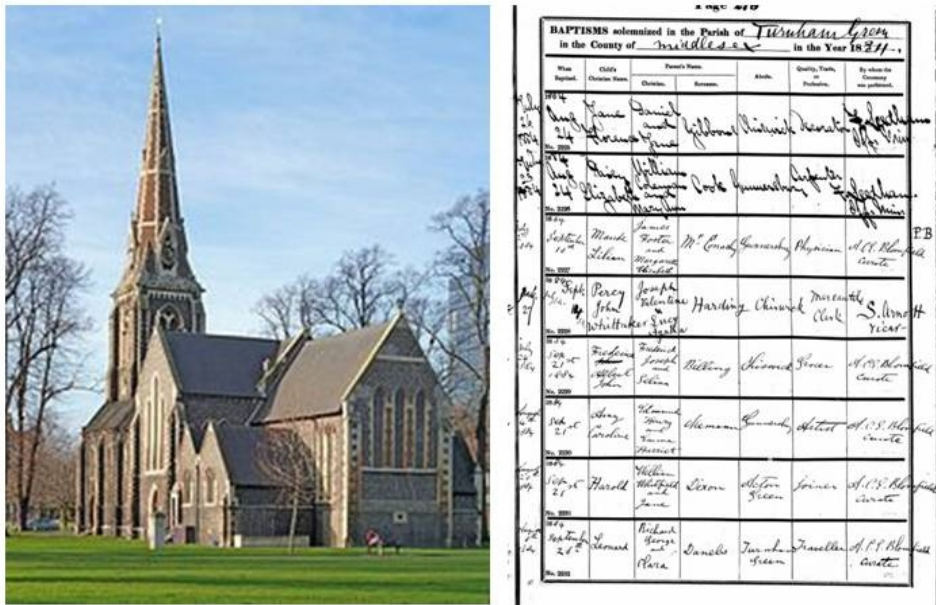 Page 279
BAPTISMS solemnized in the Parish of Turnham Green
in the County of Middlesex in the Year 1884.
When Baptized. Child's Christian Name. Parent's Name. Christian. Surname. Abode. Quality, Trade, or Profession. By whom the Ceremony was performed.
1884 Aug 24 Jane Florence Daniel and Jane Gibbons Chiswick Decorator
No. 2225
1884 Aug 24 Daisy Elizabeth William Coleman and Mary Ann Cook Gunnersbury Carpenter
No. 2226
P.B
1884 September Maude Lilian James Foster and Margaret Elizabeth Gunnersbury Physician A.C.E. Blomfield Curate
No. 2227
Sept. 14 Percy John Whittaker Joseph Valentine & Lucy Agatha Harding Chiswick Mercantile Clerk S. Arnott Vicar
No. 2228
1884 Sept 21 1884 Albert John Frederick Joseph and Selina Billing Chiswick Grocer A.C.E. Blomfield Curate
No. 2229
1884 Sept 21st Amy Caroline Edmund Henry and Emma Harriet Gunnersbury Artist A.C.E. Blomfield Curate
No. 2230
1884 Sept 21st Harold William Whitfield and Jane Dixon Acton Green Joiner A.C.E. Blomfield Curate
No. 2231
1884 September Leonard Richard George and Clara Daniels Turnham Green Traveller A.C.E. Blomfield Curate
No. 2232